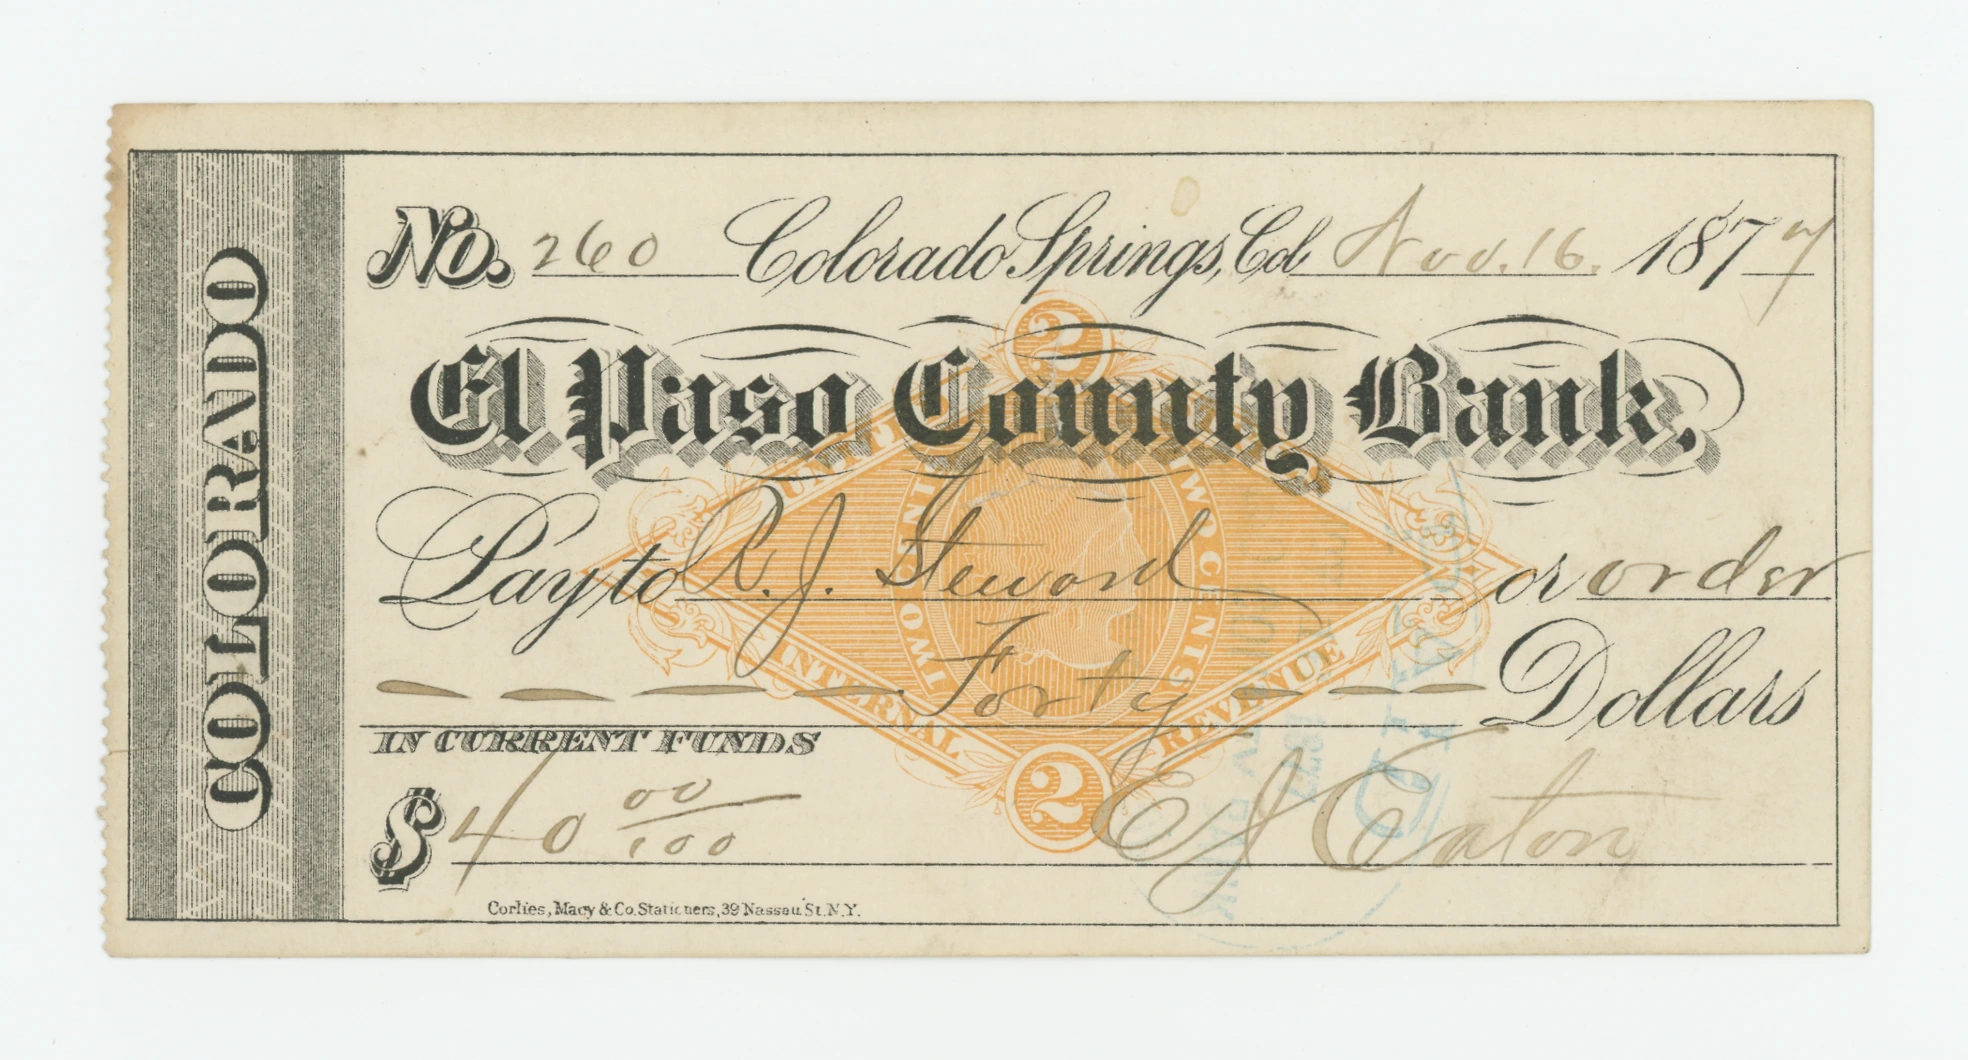 COLORADO
No. 260 Colorado Springs, Col. Nov. 16. 1877
El Paso County Bank,
UNITED
Pay to R. J. Steward or order
TWO CENTS
Forty Dollars
INTERNAL REVENUE
IN CURRENT FUNDS
2
2
$ 40 00/100 E J Eaton
Corlies, Macy & Co. Stationers, 39 Nassau St. N.Y.